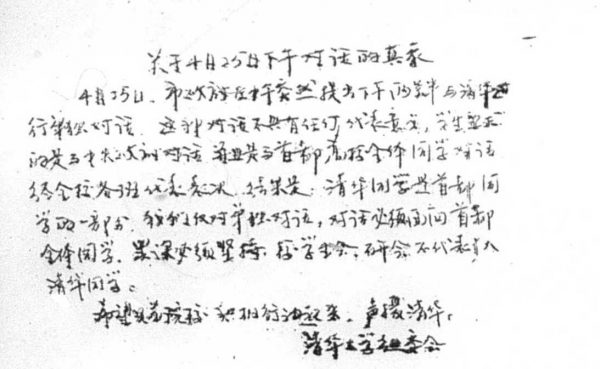 关于4月25日下午对话的真象
4月25日、市政府在中午突然提出下午两点半与清华进
行单独对话。这种对话不具有任何代表意义,学生要求
的是与中央政府对话 并且是与首都高校全体同学对话
经全校各班代表表决,结果是:清华同学是首都同
学的一部分,我们反对单独对话,对话必须面向首都
全体同学。罢课必须坚持,校学生会、研会不代表
清华同学。
希望兄弟院校 积极行动起来,声援清华。
清华大学 委会